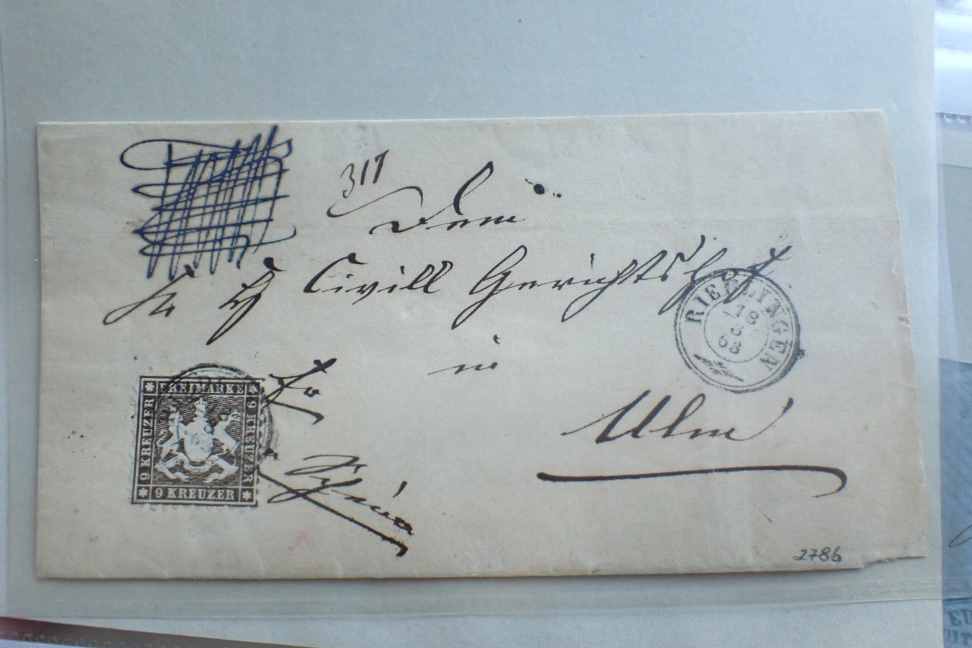 317
Dem
K. W. Civill Gerichtshof
in
Ulm
RIEDLINGEN
18
8
68
FREIMARKE
9 KREUZER
9 KREUZER
9 KREUZER
2786